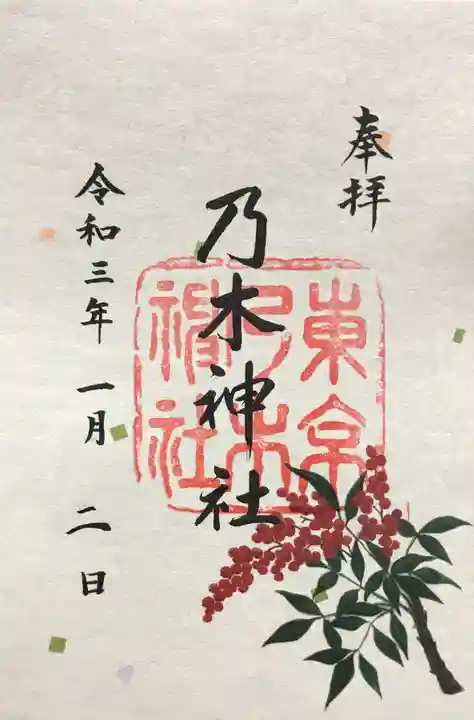 奉拝
乃木神社
令和三年一月二日
東京
乃木
神社